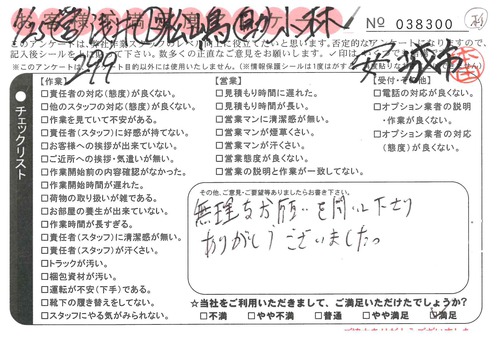 営 浅井 松嶋 助 小林
No 038300
このアンケートは、弊社作業スタッフのレベル向上に役立てたいと思います。否定的なアンケートになりますので、
記入後シールを
数多くの正直なご意見をお願いします。
※このアンケートは
アンケート目的以外には使用いたしません。(※情報保護シールは1度はがすと
299
安城市
チェックリスト
【作業】
□責任者の対応(態度)が良くない。
□他のスタッフの対応(態度)が良くない。
□作業を見ていて不安がある。
□責任者(スタッフ)に好感が持てない。
□お客様への挨拶が出来ていない。
□ご近所への挨拶・気遣いが無い。
□作業開始前の内容確認がなかった。
□作業開始時間が遅れた。
□荷物の取り扱いが雑である。
□お部屋の養生が出来ていない。
□作業時間が長すぎる。
□責任者(スタッフ)に清潔感が無い。
□責任者(スタッフ)が汗くさい。
□トラックが汚い。
□梱包資材が汚い。
□運転が不安(下手)である。
□靴下の履き替えをしてない。
□スタッフにやる気がみられない。
【営業】
□見積もり時間に遅れた。
□見積もり時間が長い。
□営業マンに清潔感が無い。
□営業マンが煙草くさい。
□営業マンが汗くさい。
□営業態度が良くない。
□営業の説明と作業が一致してない。
【受付・その他】
□電話の対応が良くない。
□オプション業者の説明
・作業が良くない。
□オプション業者の対応
(態度)が良くない。
その他、ご意見・ご要望等ありましたらお書き下さい。
無理なお願いを聞いて下さり
ありがとうございました。
☆当社をご利用いただきまして、ご満足いただけたでしょうか?
□不満 □やや不満 □普通 □やや満足 □満足